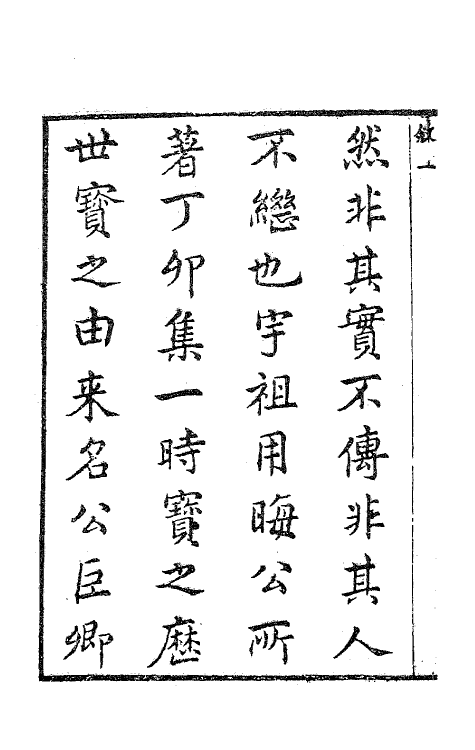 敘一
然非其實不傳非其人
不繼也宇祖用晦公所
著丁卯集一時寶之歷
世寳之由来名公臣卿